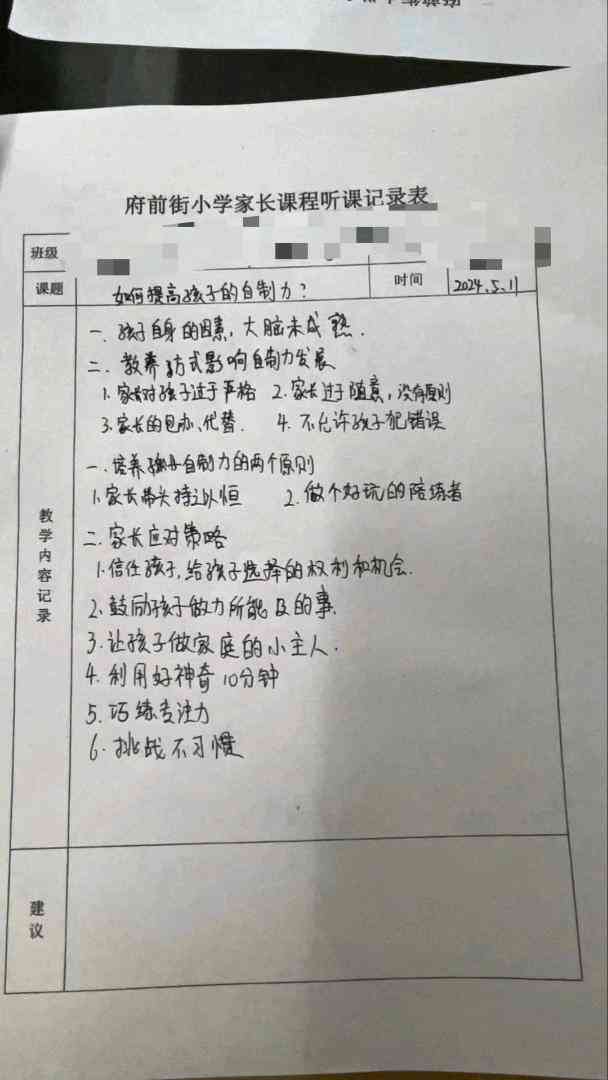 府前街小学家长课程听课记录表
班级
课题 如何提高孩子的自制力? 时间 2024.5.11
教学内容记录
一、孩子自身的因素,大脑未成熟.
二、教养方式影响自制力发展
1.家长对孩子过于严格 2.家长过于随意,没有原则
3.家长的包办、代替. 4.不允许孩子犯错误
一.培养孩子自制力的两个原则
1.家长带头持之以恒 2.做个好玩的陪练者
二.家长应对策略
1.信任孩子,给孩子选择的权利和机会.
2.鼓励孩子做力所能及的事.
3.让孩子做家庭的小主人.
4.利用好神奇10分钟
5.巧练专注力
6.挑战不习惯
建议